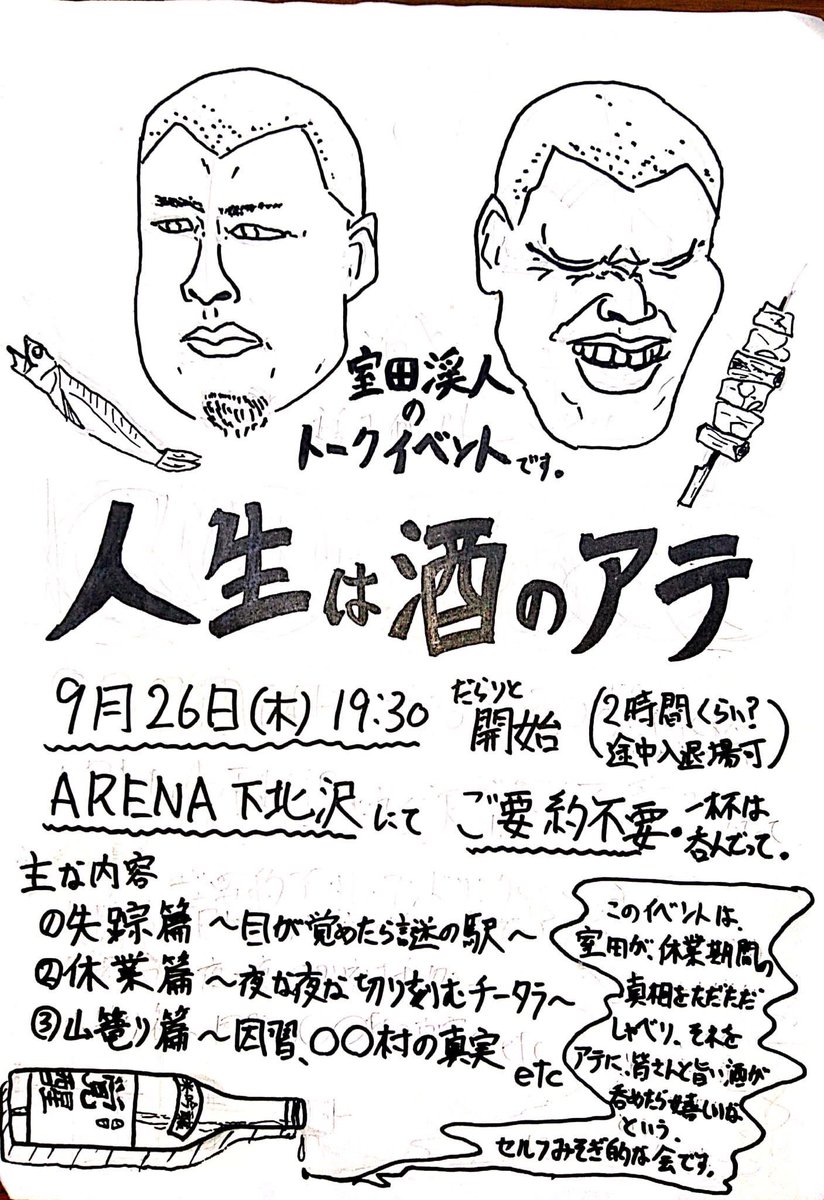 室田渓人
の
トークイベントです。
人生は酒のアテ
9月26日(木) 19:30 だらりと開始 (2時間くらい?途中入退場可)
ARENA下北沢にて ご要約不要。一杯は呑んでって。
主な内容
①失踪篇 〜目が覚めたら謎の駅〜
②休業篇 〜夜な夜な切り刻むチータラ〜
③山篭り篇 〜因習、〇〇村の真実
etc
このイベントは、
室田が、休業期間の
真相をただただ
しゃべり、それを
アテに、皆さんと旨い酒が
呑めたら嬉しいな
という、
セルフみそぎ的な会です。
覚醒